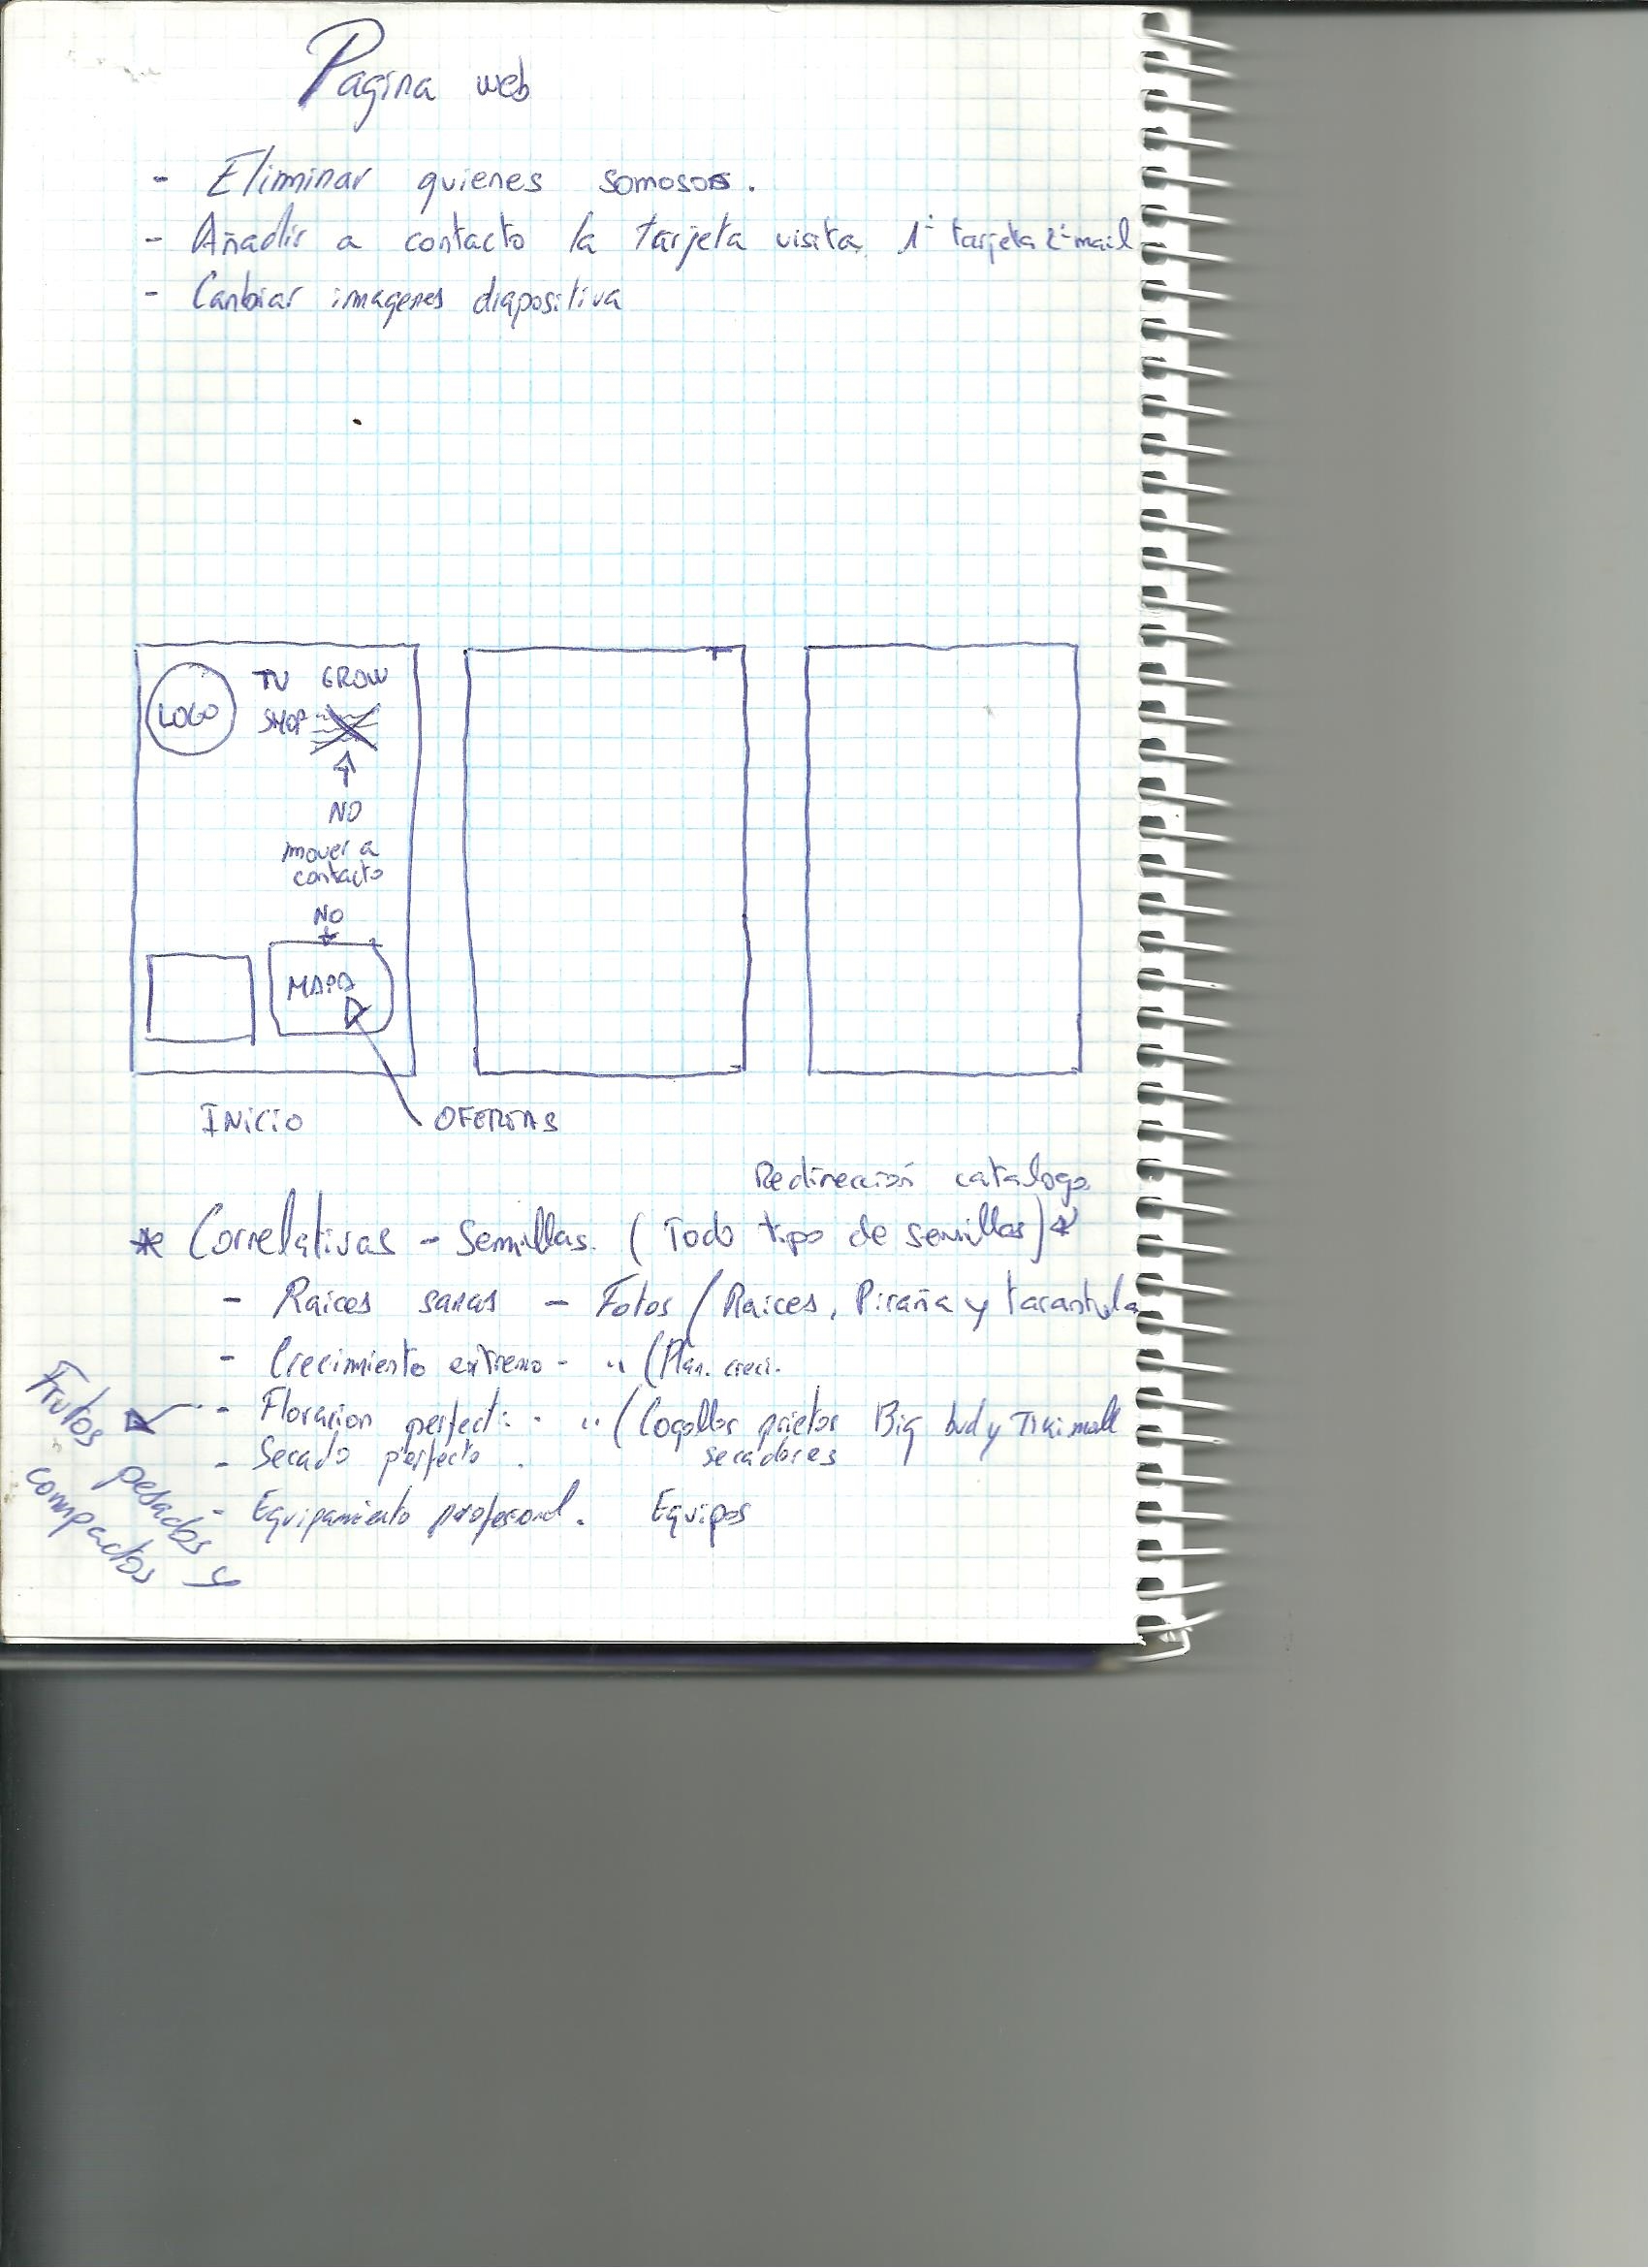 Pagina web
- Eliminar quienes somos.
- Añadir a contacto la tarjeta visita. 1º tarjeta 2º mail
- Canbiar imagenes diapositiva
LOGO
TU GROW
SHOP
NO
mover a
contacto
NO
MAPA
INICIO
OFERTAS
Redirección catalogo
* Correlativas - Semillas. (Todo tipo de semillas)
- Raices sanas - Fotos (Raices, Piraña y tarantula
- Crecimiento extremo - " (Plan. creci.
- Floracion perfect. " (Cogollos prietos Big bud y
- Secado perfecto. secadores
- Equipamiento profesional. Equipos
Frutos
pesados y
compactos